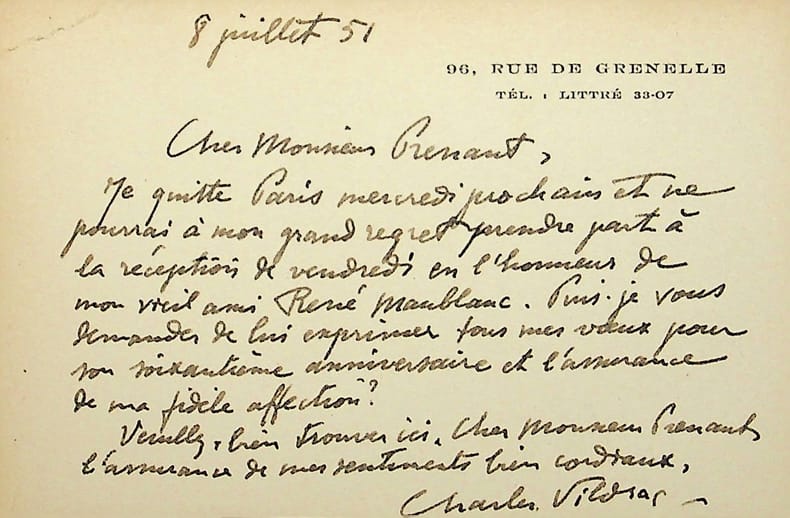 8 juillet 51
96, RUE DE GRENELLE
TÉL. : LITTRÉ 33-07
Cher Monsieur Prenant,
Je quitte Paris mercredi prochain et ne
pourrai à mon grand regret prendre part à
la réception de vendredi en l'honneur de
mon vieil ami René Maublanc. Puis-je vous
demander de lui exprimer tous mes vœux pour
son soixantième anniversaire et l'assurance
de ma fidèle affection?
Veuillez bien trouver ici, Cher Monsieur Prenant,
l'assurance de mes sentiments bien cordiaux,
Charles Vildrac